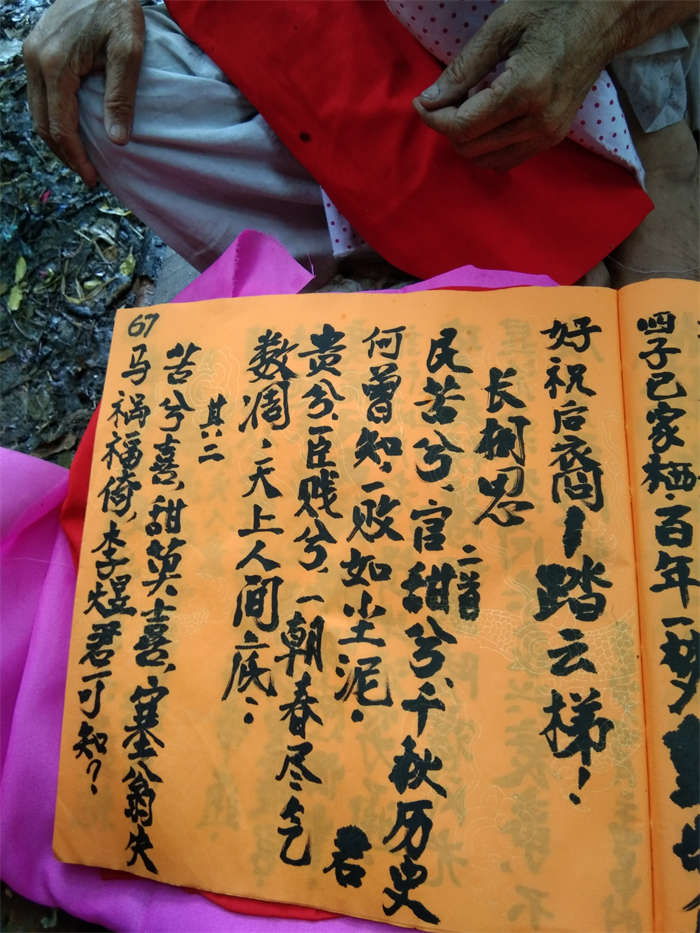 四子已家栖,百年一
好祝后裔—踏云梯!
长相思 二首
民苦兮,官甜兮,千秋历史
何曾知,一败如尘泥。君
贵兮,臣贱兮,一朝春尽气
数凋,天上人间底:
其二
苦兮喜,甜莫喜,塞翁失
马祸福倚,李煜君可知?
67